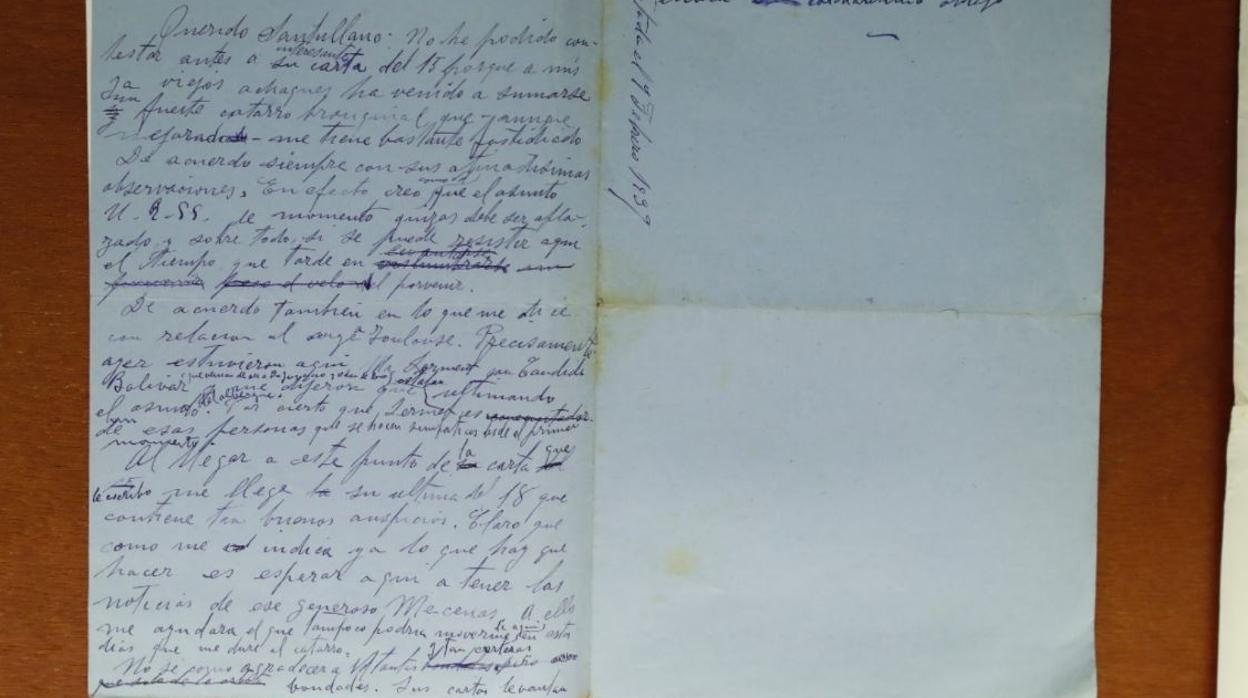 Querido Santullano: No he podido con-
testar antes a su interesante carta del 15 porque a mis
ya viejos achaques ha venido a sumarse
un fuerte catarro bronquial que -aunque
mejorado- me tiene bastante fastidiado
De acuerdo siempre con sus atinadísimas
observaciones. En efecto creo como Vd que el asunto
U.R.SS. de momento quizas debe ser apla-
zado y sobre todo, si se puede resistir aqui
el tiempo que tarde en
el porvenir.
De acuerdo también en lo que me dice
con relacion al Toulouse. Precisamente
ayer estuvieron aqui Mr con Candido
Bolivar y me dijeron que estaban ultimando
el asunto del albergue. Por cierto que es
un de esas personas que se hacen simpaticas desde el primer
momento.
Al llegar a este punto de la carta que
le escribo me llega su ultima del 18 que
contiene tan buenos auspicios. Claro que
como me indica ya lo que hay que
hacer es esperar aqui a tener las
noticias de ese generoso Mecenas. A ello
me ayudara el que tampoco podria moverme de aqui en estos
dias que me dure el catarro.
No se como agradecer a Vd tantas y tan certeras
bondades. Sus cartas levantan
el 19 Febrero 1939